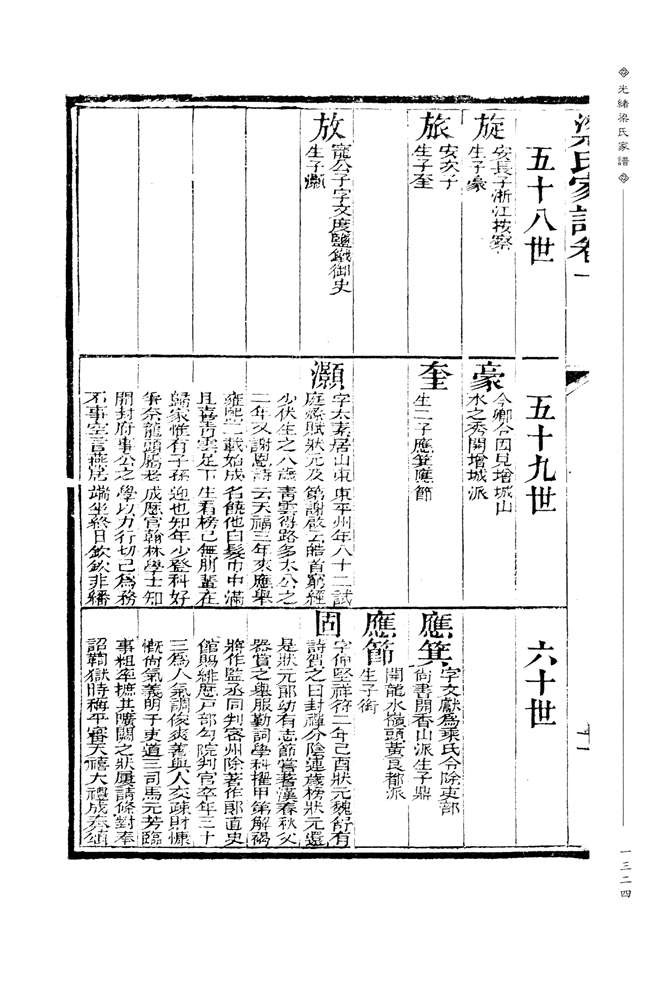 光緒梁氏家譜
一三二四
梁氏家譜卷一
十一
五十八世
旋
安長子浙江按察
生子豪
旅
安次子
生子奎
放
寬公子字文度鹽鐵御史
生子灝
五十九世
豪
令鄉令因見增城山
水之秀開增城派
奎
生二子應箕應節
灝
字太素居山東東平州年八十二試
庭燎賦狀元及第謝啟云皓首窮經
少伏生之八歲青雲得路多太公之
二年又謝恩詩云天福三年來應舉
雍熙二載始成名饒他白髮巾中滿
且喜青雲足下生看榜已無朋輩在
歸家惟有子孫迎也知年少登科好
爭奈龍頭屬老成歷官翰林學士知
開封府事公之學以力行切己為務
不事空言燕居端坐終日欽欽非繙
六十世
應箕
字文獻為乘氏令除吏部
尚書開香山派生子鼎
應節
開龍水嶺頭黃良都派
生子銜
固
字仲堅祥符二年己酉狀元魏舒有
詩賀之曰封禪分陰連歲榜狀元還
是狀元郎幼有志節嘗著漢春秋父
器賞之與服勤詞學科擢甲第解褐
將作監丞同判密州除著作郎直史
館賜緋歷戶部勾院判官卒年三十
三為人氣調俊爽善與人交疎財慷
慨尚氣義明于吏道三司馬元芳臨
事粗率摭其曠闕之狀屢請條對奉
詔鞫獄時稱平審天禧大禮成奏頌